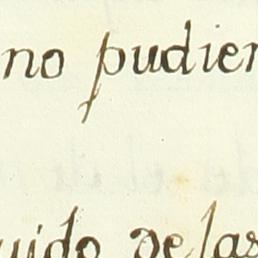 no pudier
uido de las